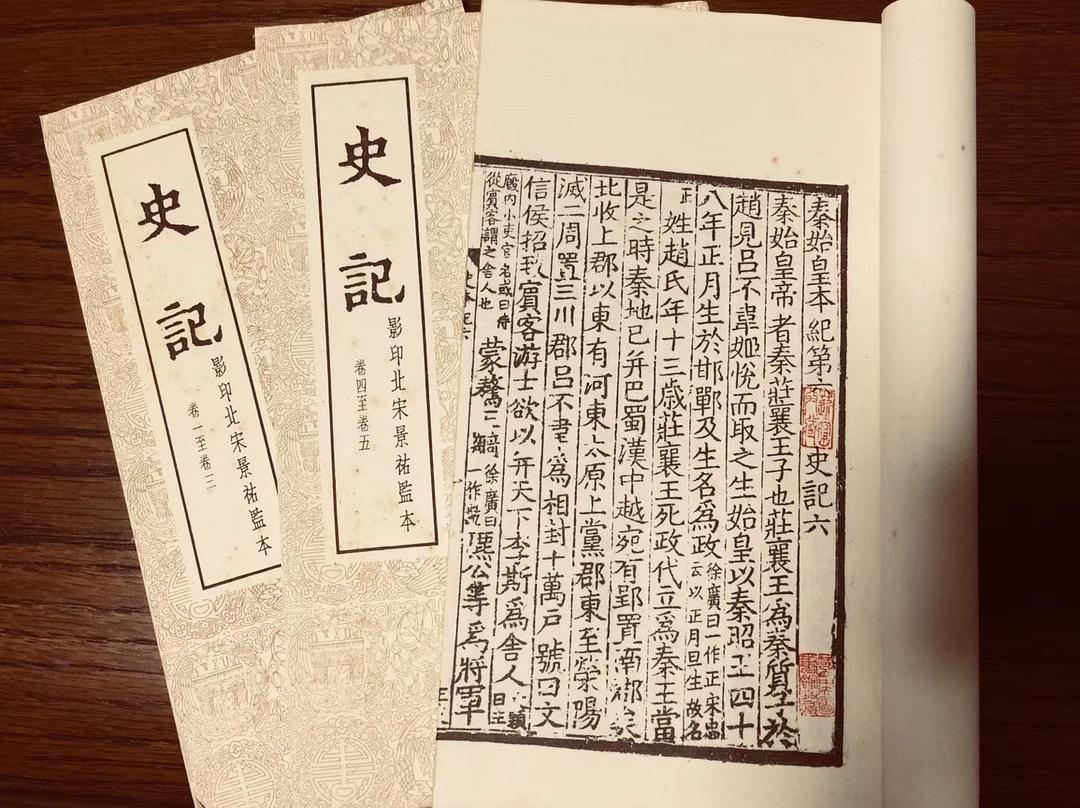 史記
影印北宋景祐監本
卷一至卷三
史記
影印北宋景祐監本
卷四至卷五
秦始皇本紀第六 史記六
秦始皇帝者秦莊襄王子也莊襄王爲秦質子於
趙見呂不韋姬悅而取之生始皇以秦昭王四十
八年正月生於邯鄲及生名爲政徐廣曰一作正宋忠云以正月旦生故名
正姓趙氏年十三歲莊襄王死政代立爲秦王當
是之時秦地已并巴蜀漢中越宛有郢置南郡矣
北收上郡以東有河東太原上黨郡東至滎陽
滅二周置三川郡呂不韋爲相封十萬戶號曰文
信侯招致賓客游士欲以并天下李斯爲舍人
廄內小吏官名或曰侍
從賓客謂之舍人也 蒙驁王齮徐廣曰一作齕麃公等爲將軍